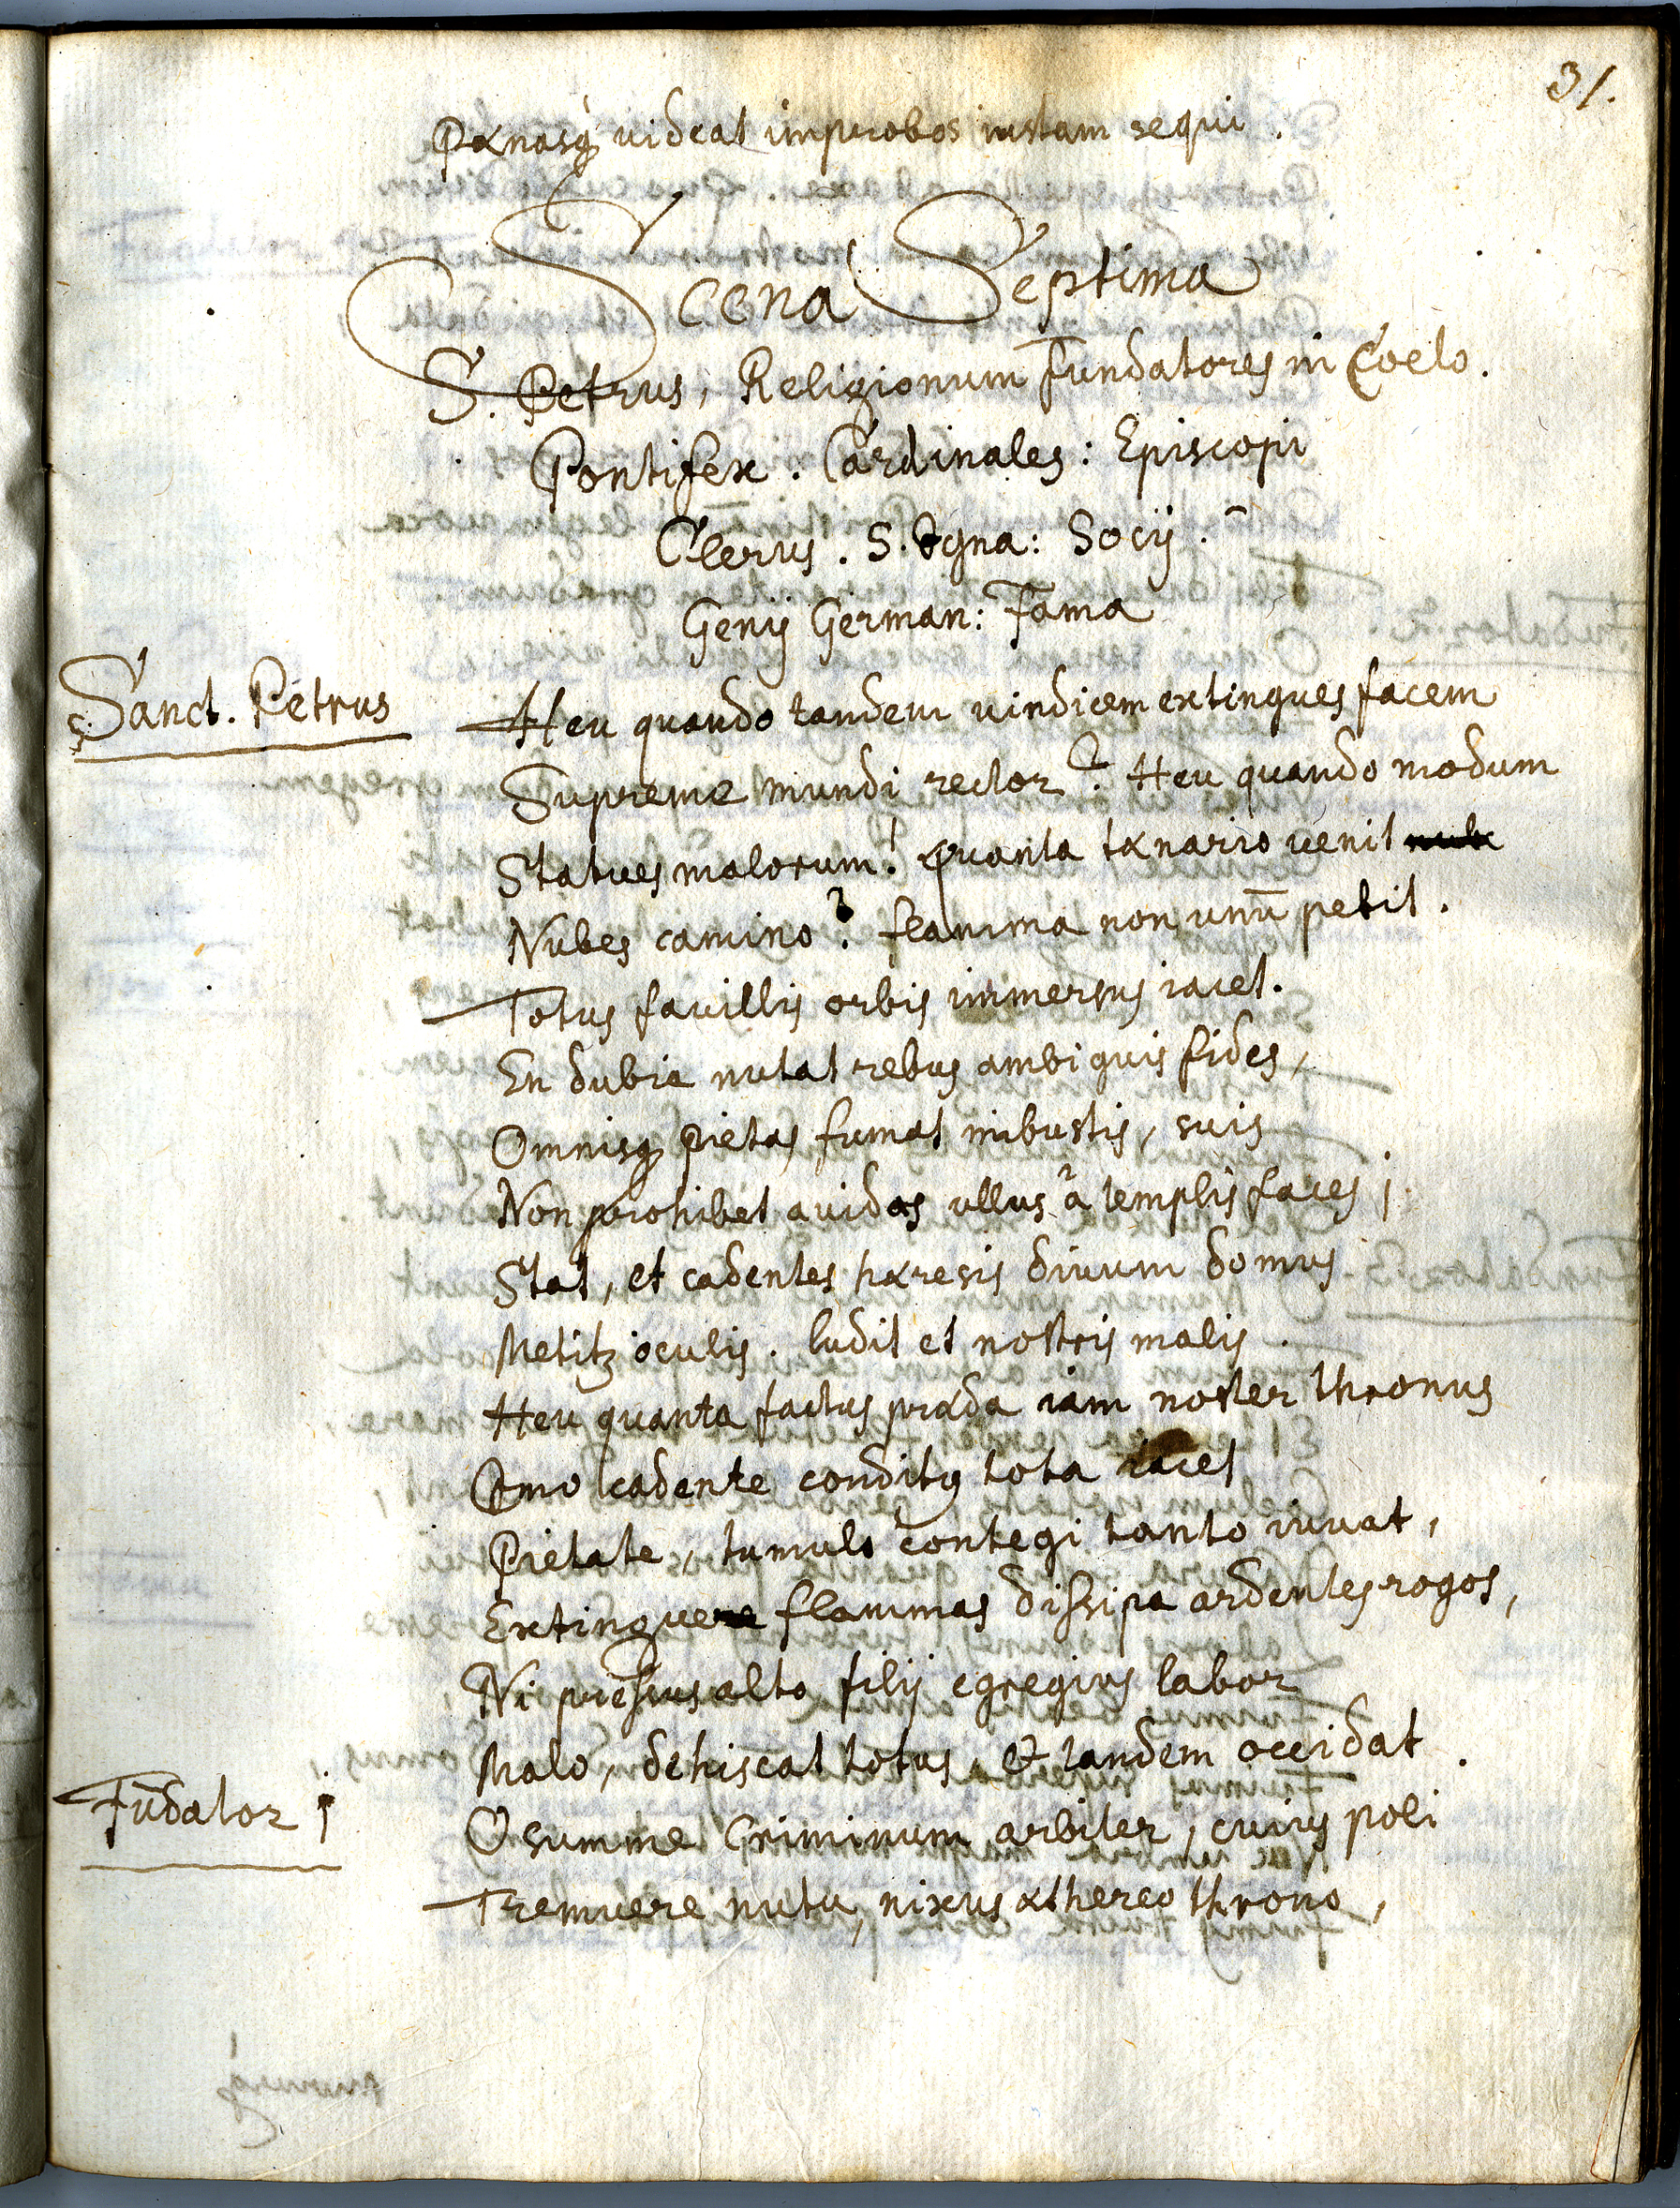 31.
Pænasq̃ videat improbos iustam sequi.
Scena Septima
S. Petrus, Religionum Fundatores in Coelo.
Pontifex. Cardinales: Episcopi
Clerus. S. Igna: Socij.
Genij German: Fama
Sanct. Petrus
Heu quando tandem vindicem extingues facem
Supreme mundi rector? Heu quando modum
Statues malorum! quanta tænario venit
Nubes camino? flamma non unū petit.
Totus favillis orbis immersus iacet.
En dubia nutat rebus ambiguis fides,
Omnisq̃ pietas fumat in bustis, suis
Non prohibet avidas ullus à templis faces;
Stat, et cadentes hæresis divum domus
Metitz oculis. ludit et nostris malis.
Heu quanta factus præda iam noster thronus
Qmo cadente conditus tota iacet
Pietate, tumulo contegi tanto iuvat,
Extingue flammas dissipa ardentes rogos,
Ni pressus alto filij egregius labor
Malo, dehiscat totus, et tandem occidat.
Fūdator j
O summe Criminum arbiter, cuius poli
Tremuere nutu, nixus æthereo throno,